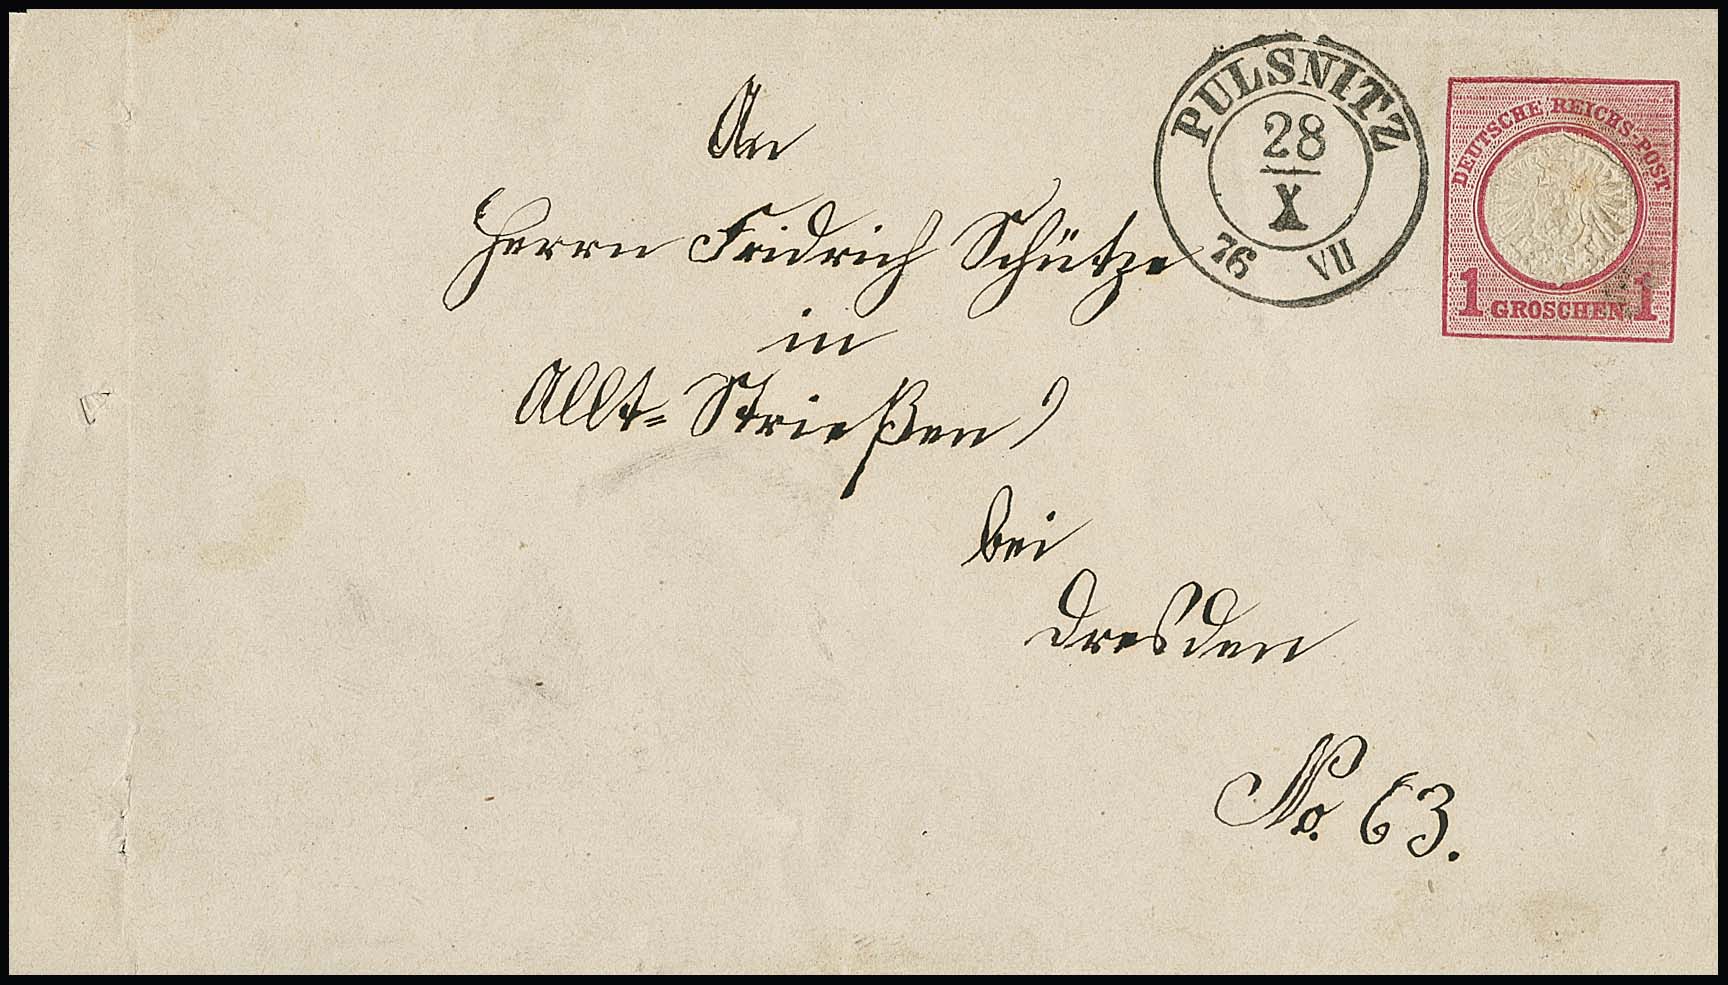 An
Herrn Fridrich Schütze
in
Allt=Strießen
bei
Dresden
No. 63.
PULSNITZ
28
X
76 VII
DEUTSCHE REICHS-POST
1 GROSCHEN 1